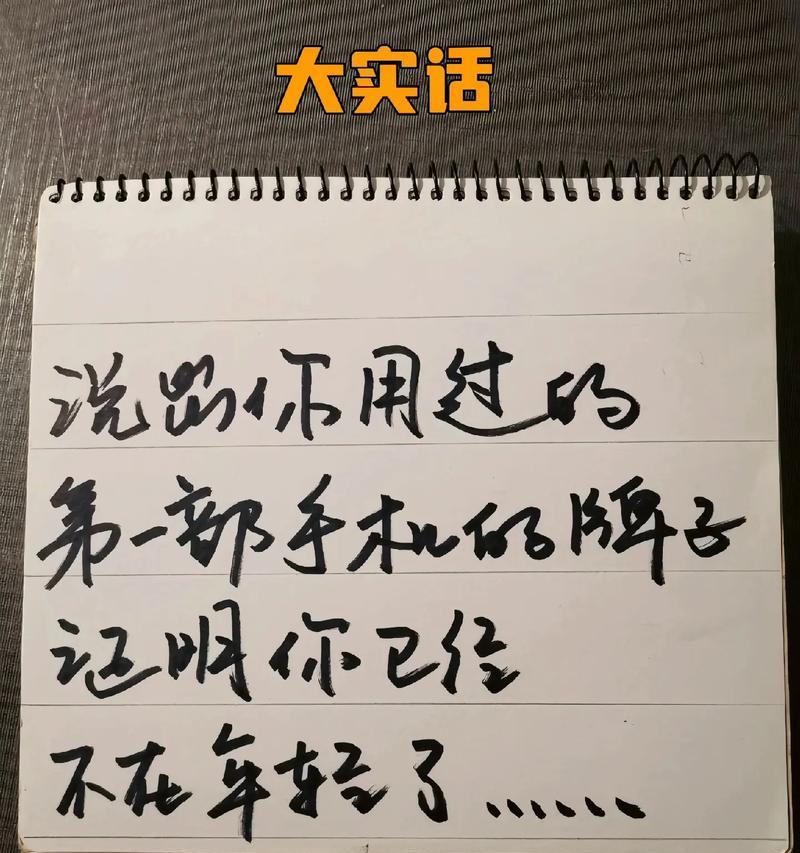 大实话
说出你用过的
第一部手机的牌子
证明你已经
不在年轻了......